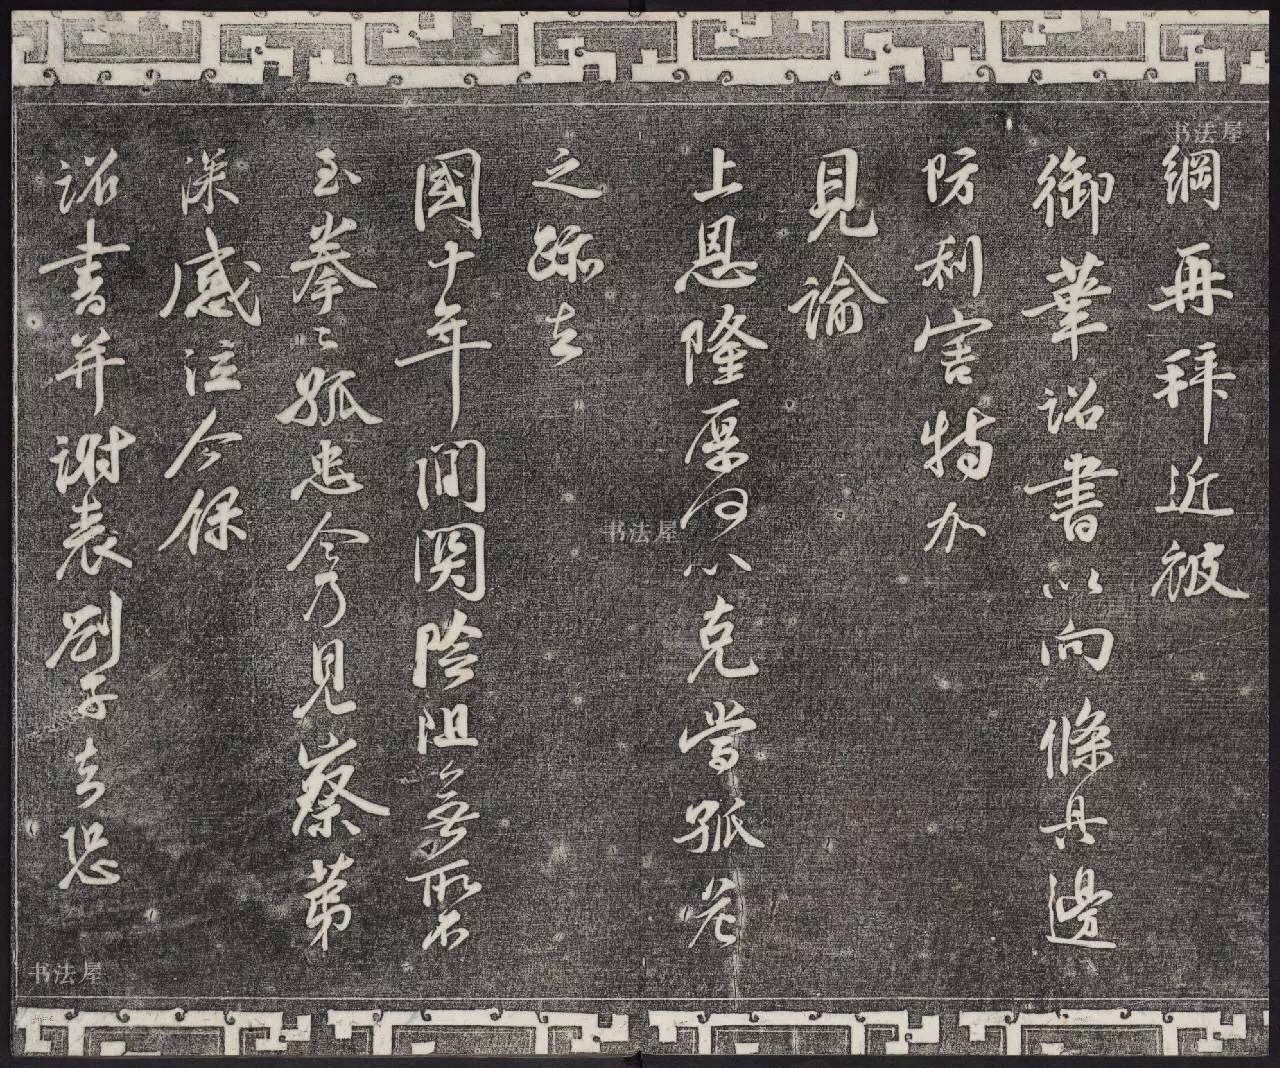 綱再拜近被
御筆詔書以向條具邊
防利害特加
見諭
上恩隆厚何以克當孤危
之跡去
國十年間關險阻無所不
至拳拳孤忠今乃見察第
深感泣今保
詔書并謝表劄子去恐
书法屋
书法屋
书法屋